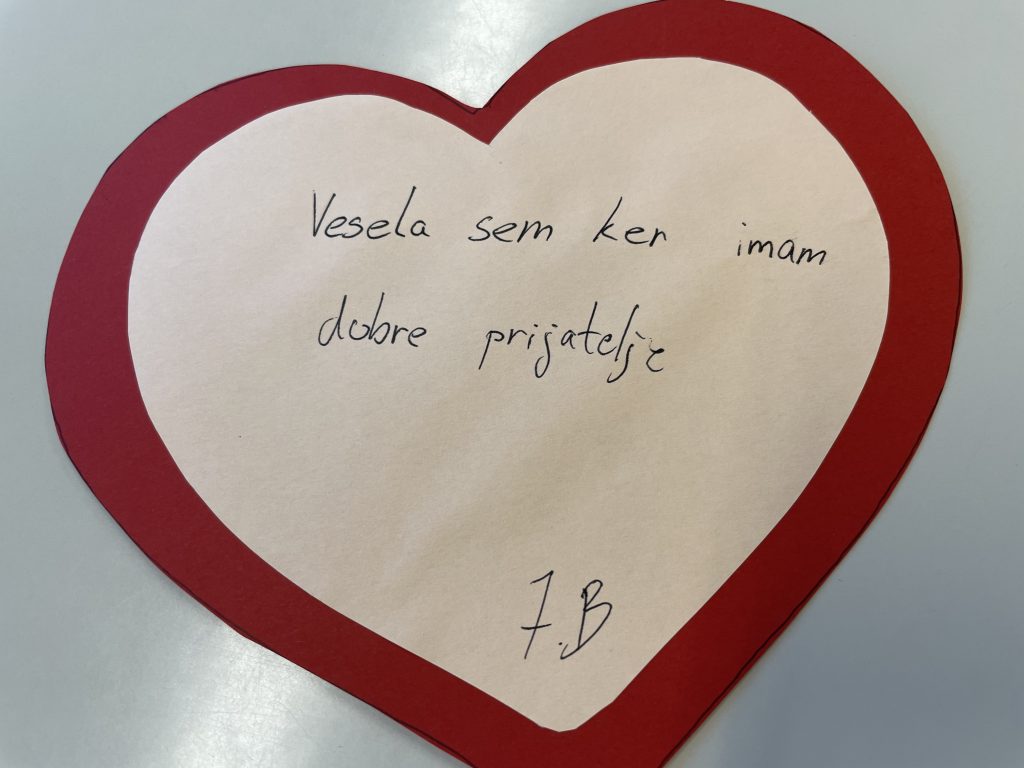 Vesela sem ker imam
dobre prijatelje
7.B